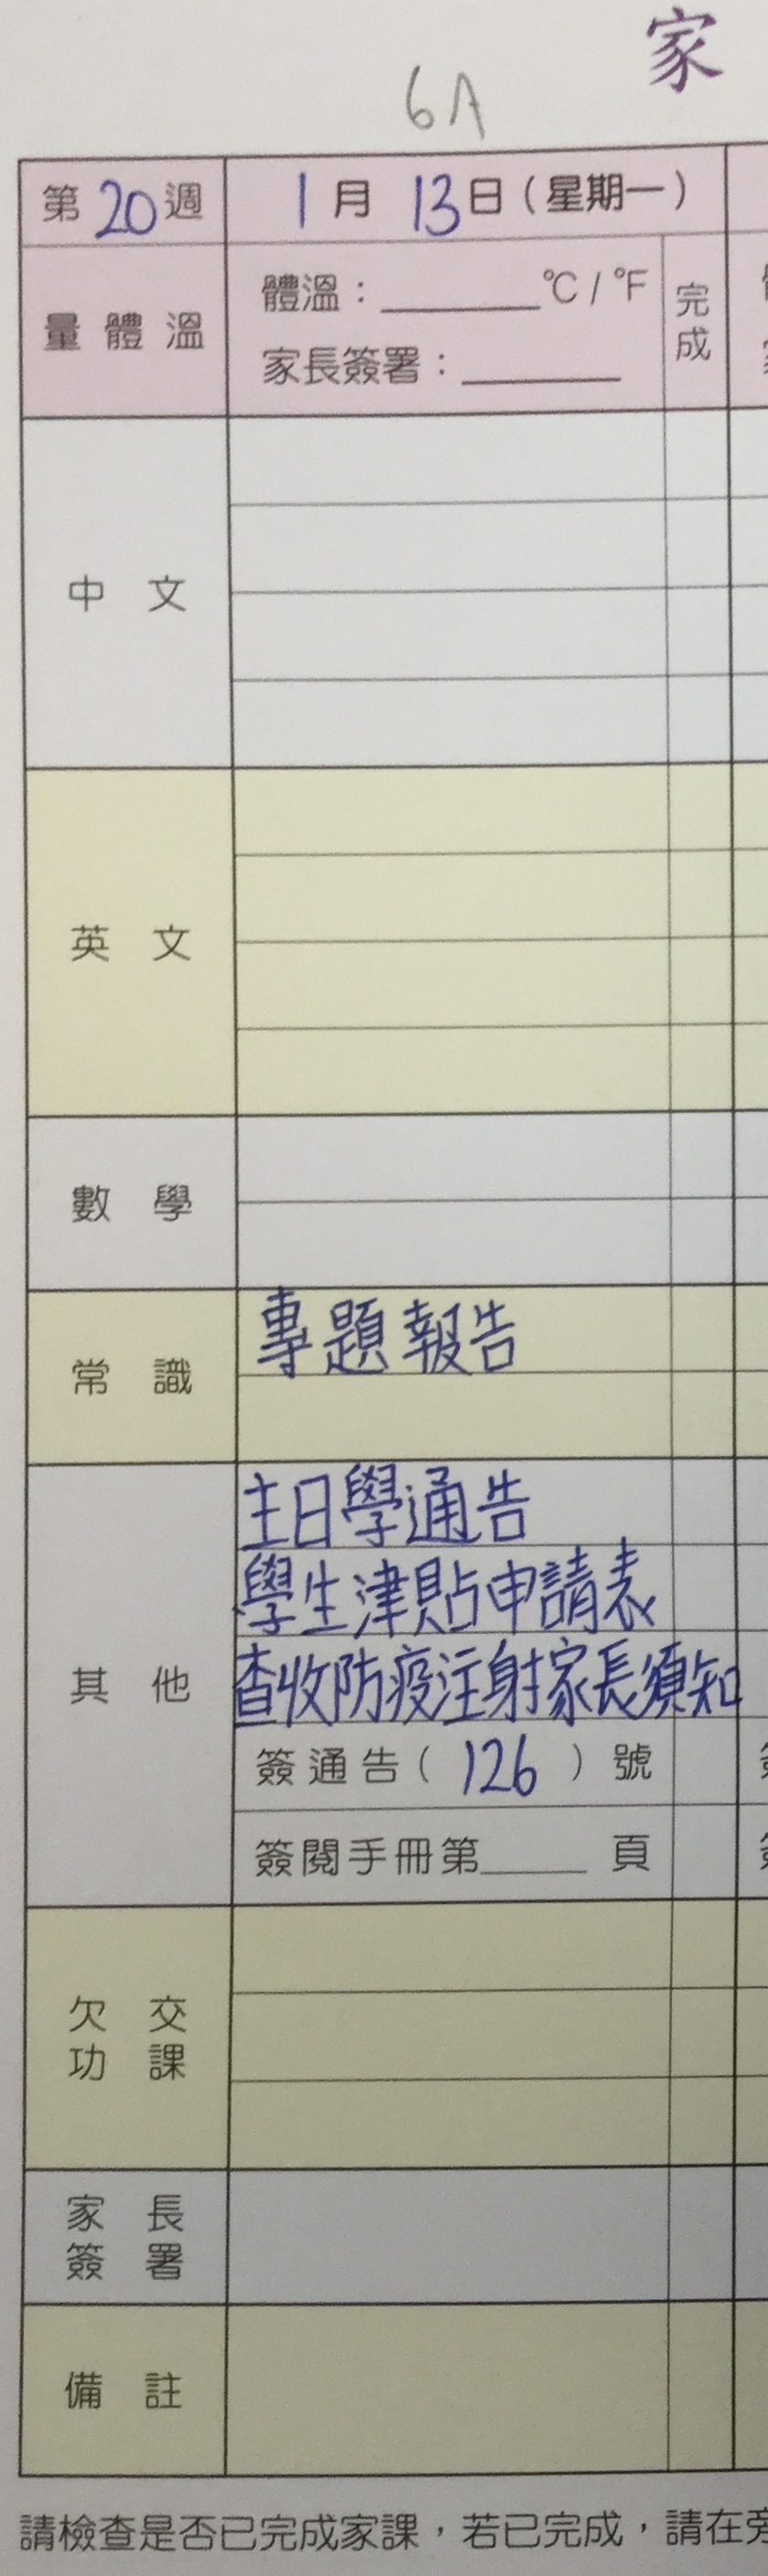 家
6A
第20週 1月13日(星期一)
量體溫 體溫:______°C/°F 完成
家長簽署:______
中文
英文
數學
常識 專題報告
其他 主日學通告
學生津貼申請表
查收防疫注射家長須知
簽通告(126)號
簽閱手冊第______頁
欠交功課
家長簽署
備註
請檢查是否已完成家課,若已完成,請在旁